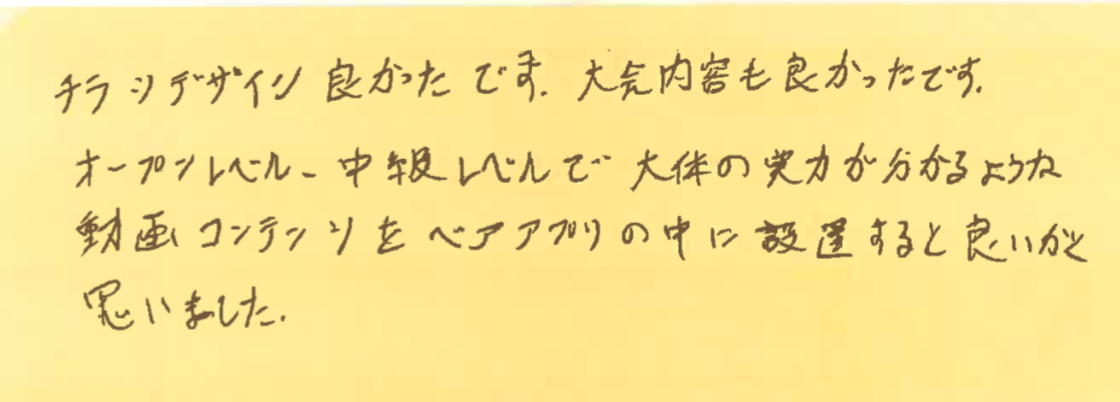 チラシデザイン良かったです. 大会内容も良かったです.
オープンレベル、中級レベルで大体の実力が分かるような
動画コンテンツをベアアプリの中に設置すると良いかと
思いました.